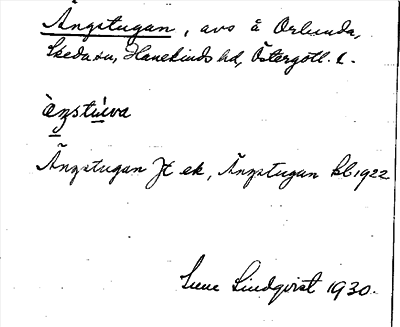 Ängstugan, avs å Orlunda,
Skeda sn, Hanekinds hd, Östergötl. l.
ä̀ŋstùwa
Ängstugan Jt ek, Ängstugan kb 1922
Sune Lindqvist 1930.